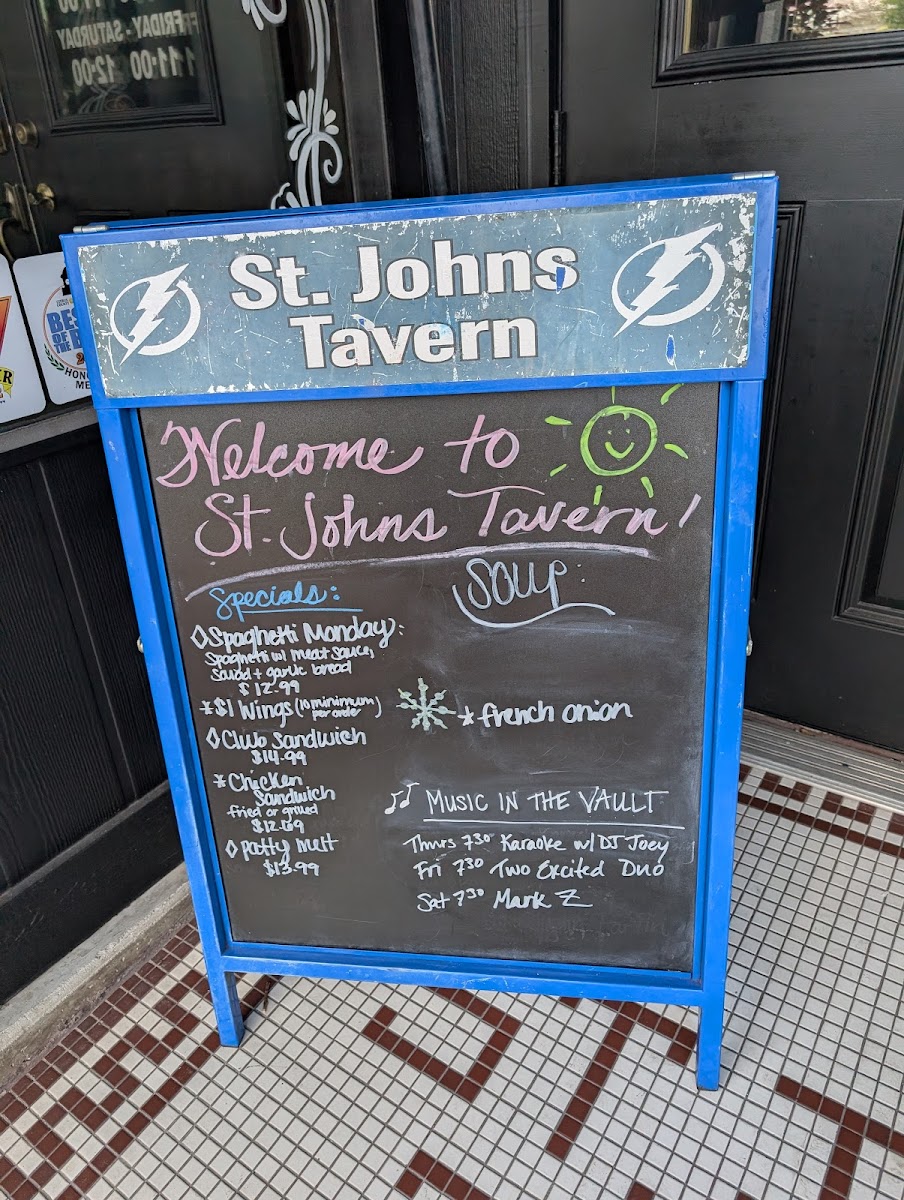 FRIDAY - SATURDAY
11:00 12:00
BEST
OF THE
St. Johns
Tavern
Welcome to
St. Johns Tavern!
Specials:
Spaghetti Monday:
Spaghetti w/ meat sauce,
salad + garlic bread
$12.99
* $1 Wings (10 minimum
per order)
Club Sandwich
$14.99
* Chicken
Sandwich
fried or grilled
$12.69
patty melt
$13.99
SOUP:
* french onion
MUSIC IN THE VAULT
Thurs 7:30 Karaoke w/ DJ Joey
Fri 7:30 Two Excited Duo
Sat 7:30 Mark Z